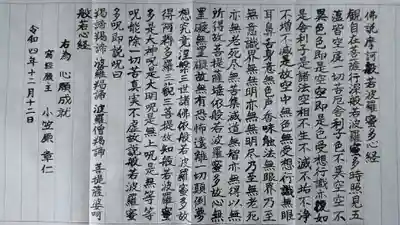 佛説摩訶般若波羅蜜多心経
観自在菩薩行深般若波羅蜜多時照見五
蘊皆空度一切苦厄舎利子色不異空空不
異色色即是空空即是色受想行識亦復如
是舎利子是諸法空相不生不滅不垢不浄
不増不減是故空中無色無受想行識無眼
耳鼻舌身意無色声香味触法無眼界乃至
無意識界無無明亦無無明尽乃至無老死
亦無老死尽無苦集滅道無智亦無得以無
所得故菩提薩埵依般若波羅蜜多故心無
罣礙無罣礙故無有恐怖遠離一切顛倒夢
想究竟涅槃三世諸佛依般若波羅蜜多故
得阿耨多羅三藐三菩提故知般若波羅蜜
多是大神呪是大明呪是無上呪是無等等
呪能除一切苦真実不虚故説般若波羅蜜
多呪即説呪曰
羯諦羯諦 波羅羯諦 波羅僧羯諦 菩提薩婆訶
般若心経
右為 心願成就
写経願主 小笠原 章仁
令和四年十二月十二日